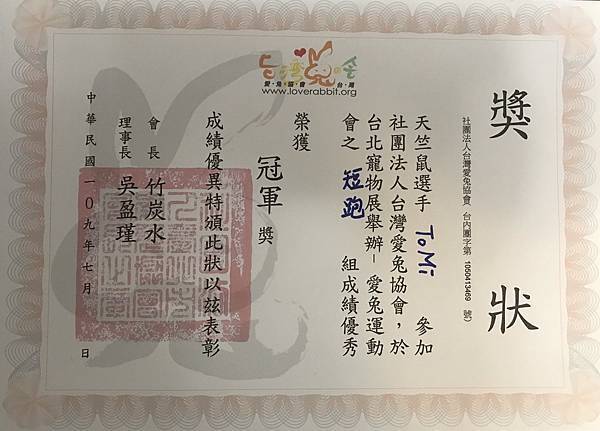 獎狀
社團法人台灣愛兔協會 台內團字第 1050413469 號）
天竺鼠選手 ToMi 參加
社團法人台灣愛兔協會，於
台北寵物展舉辦－愛兔運動
會之 短跑 組成績優秀
榮獲 冠軍 獎
成績優異特頒此狀以茲表彰
會長 竹炭水
理事長 吳盈瑾
中華民國一0九年七月 日
愛•兔•協•會 台•灣
www.loverabbit.org